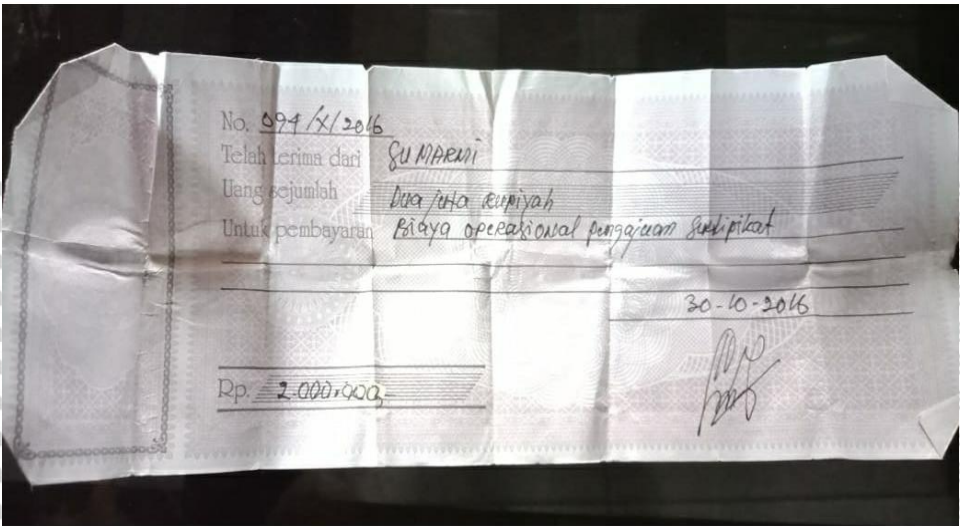 No. 094/X/2016
Telah terima dari SUMARMI
Uang sejumlah Dua juta Rupiyah
Untuk pembayaran Biaya operasional pengajuan Sertipikat
30-10-2016
Rp. 2.000.000,-